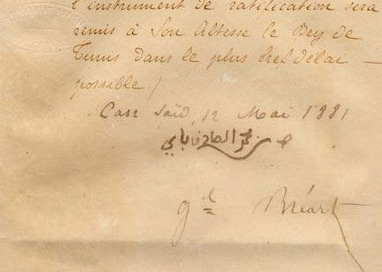 l'instrument de ratification sera
remis à Son Altesse le Bey de
Tunis dans le plus bref délai
possible /
Casr Saïd, 12 Mai 1881
محمد الصادق باي
gal Bréart